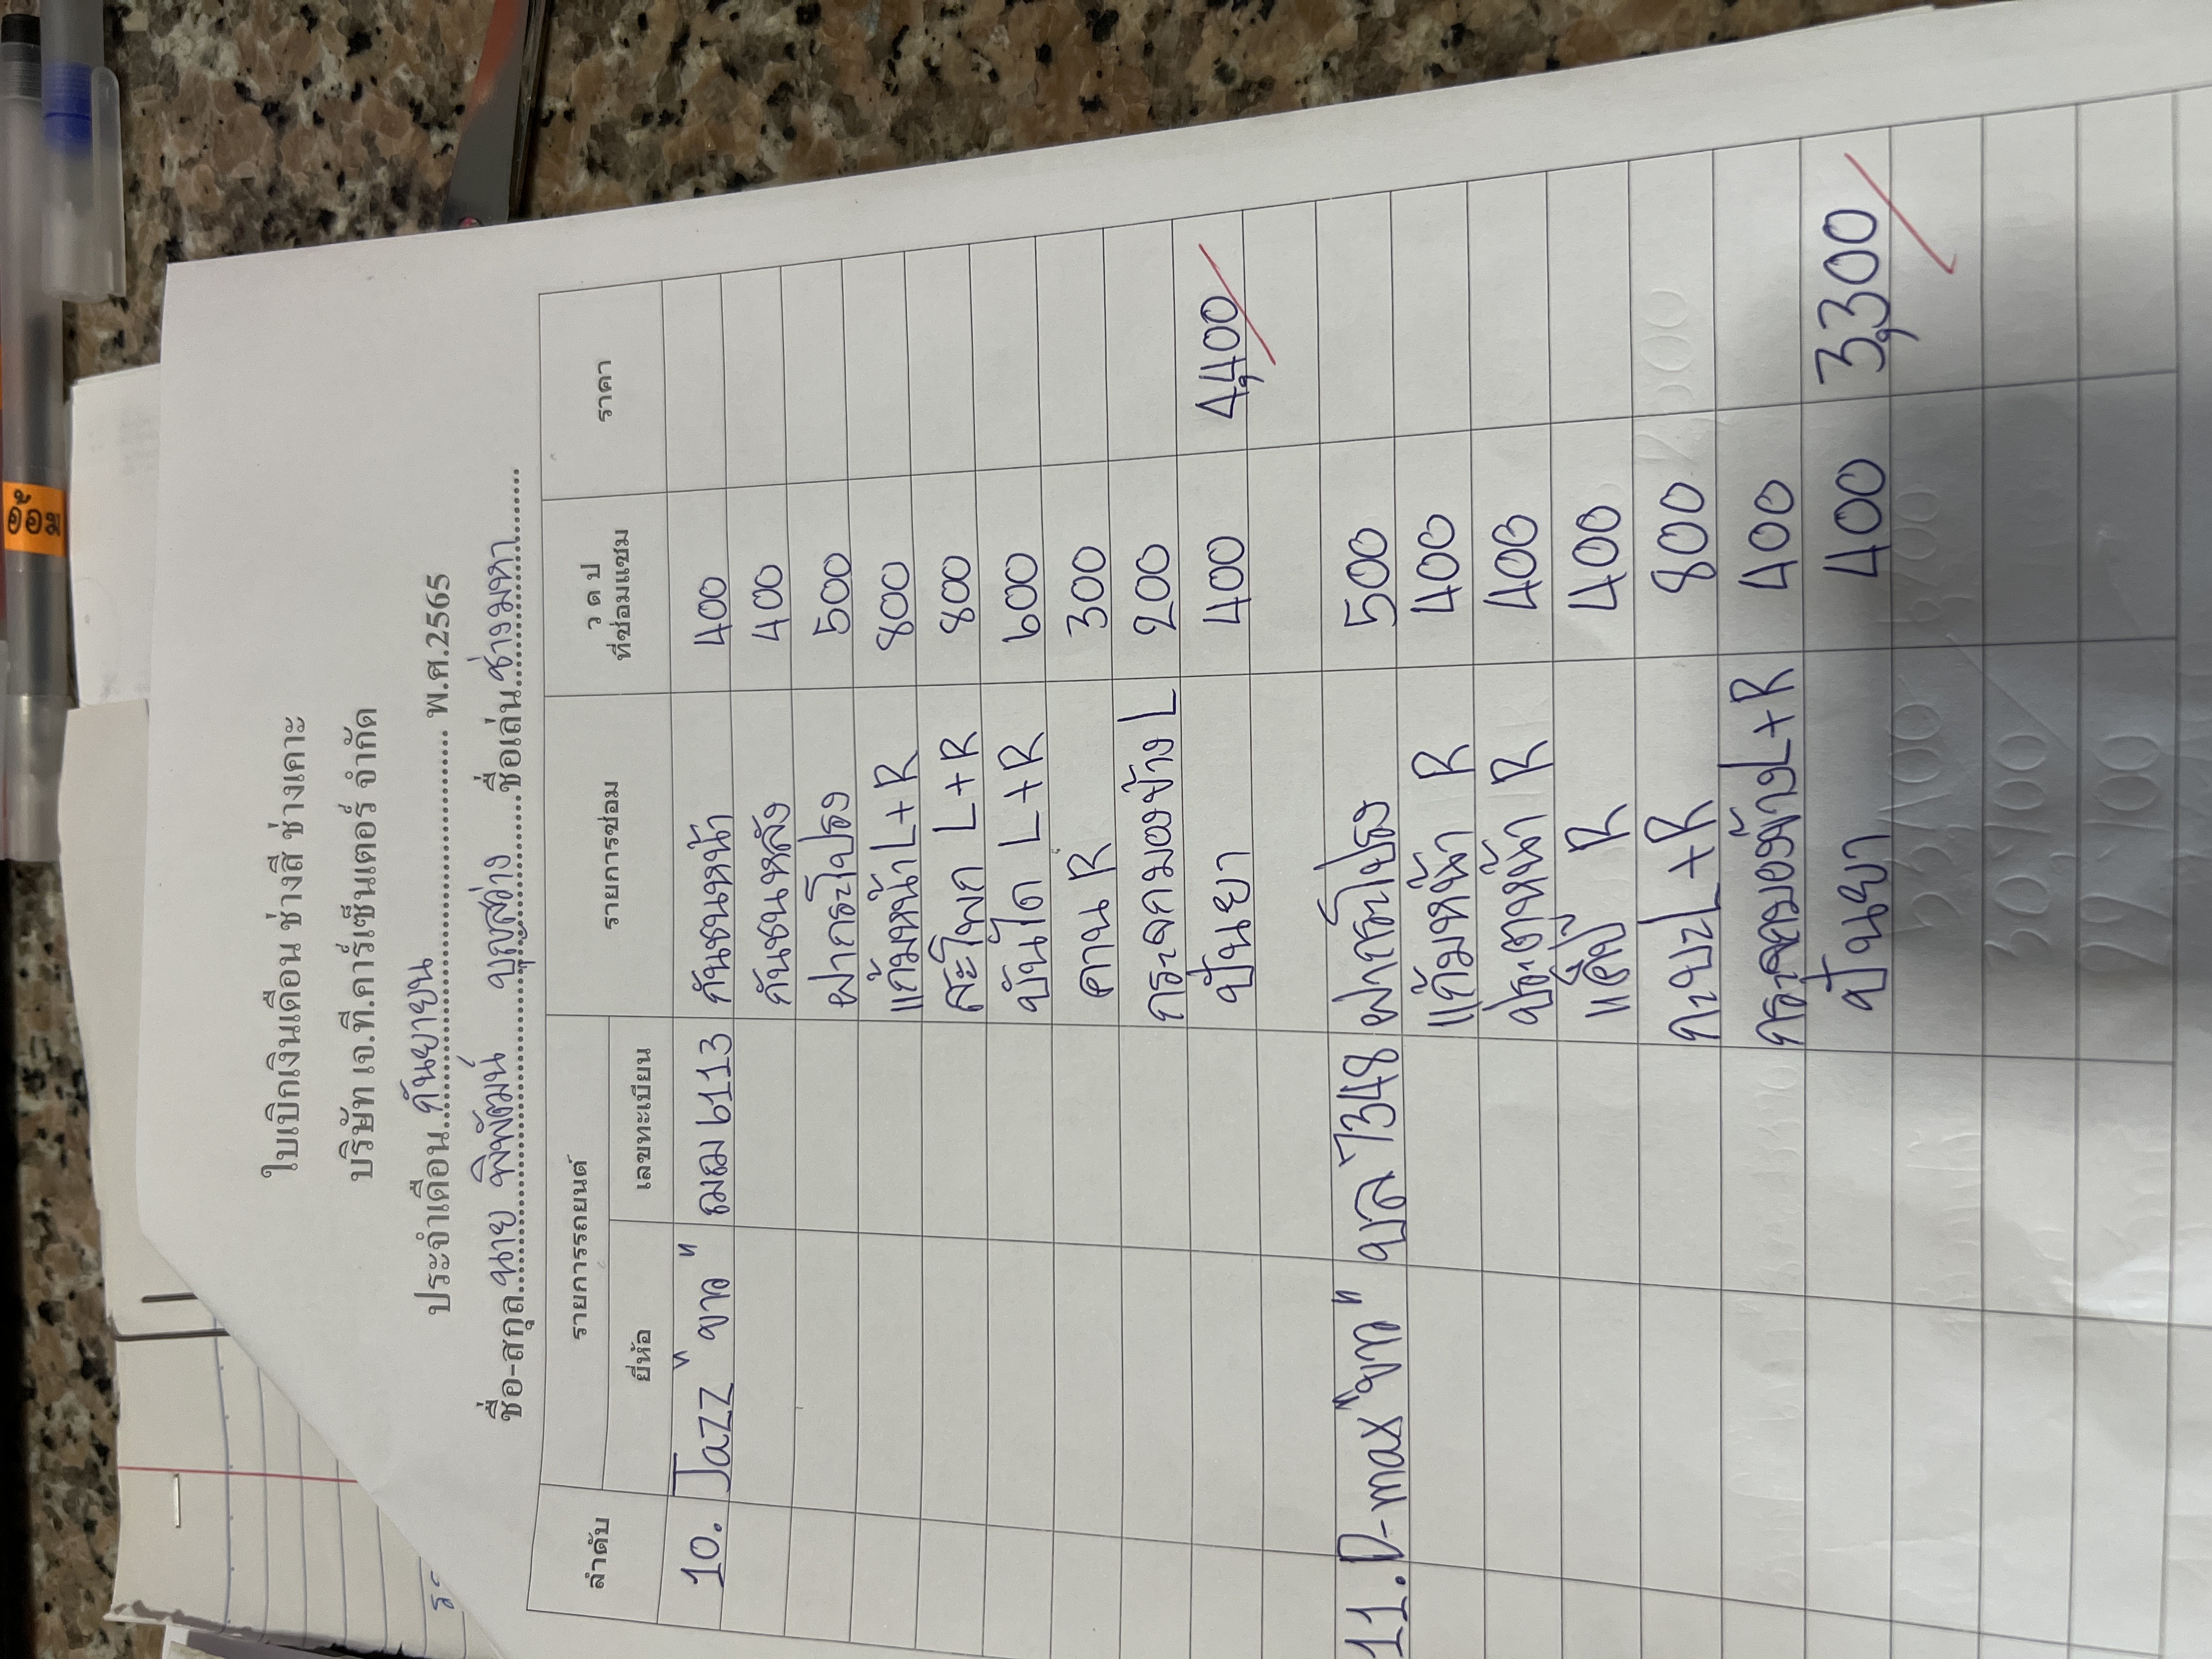 อ้อม
ใบเบิกเงินเดือน ช่างสี ช่างเคาะ
บริษัท เจ.ที.คาร์เซ็นเตอร์ จำกัด
ประจำเดือน กันยายน พ.ศ.2565
ชื่อ-สกุล นาย พิพัฒน์ บุญสว่าง ชื่อเล่น ช่างมหา
ลำดับ รายการรถยนต์ รายการซ่อม ว ด ป ที่ซ่อมแซม ราคา
ยี่ห้อ เลขทะเบียน
10. Jazz "ขาว" ฌฌ 6113 กันชนหน้า 400
กันชนหลัง 400
ฝากระโปรง 500
แก้มหน้า L+R 800
สะโพก L+R 800
บันได L+R 600
คาน R 300
กระจกมองข้าง L 200
ปั่นยา 400 4,400
11. D-max "ขาว" บล 7348 ฝากระโปรง 500
แก้มหน้า R 400
ประตูหน้า R 400
แค๊ป R 400
กะบะ L+R 800
กระจกมองข้าง L+R 400
ปั่นยา 400 3,300